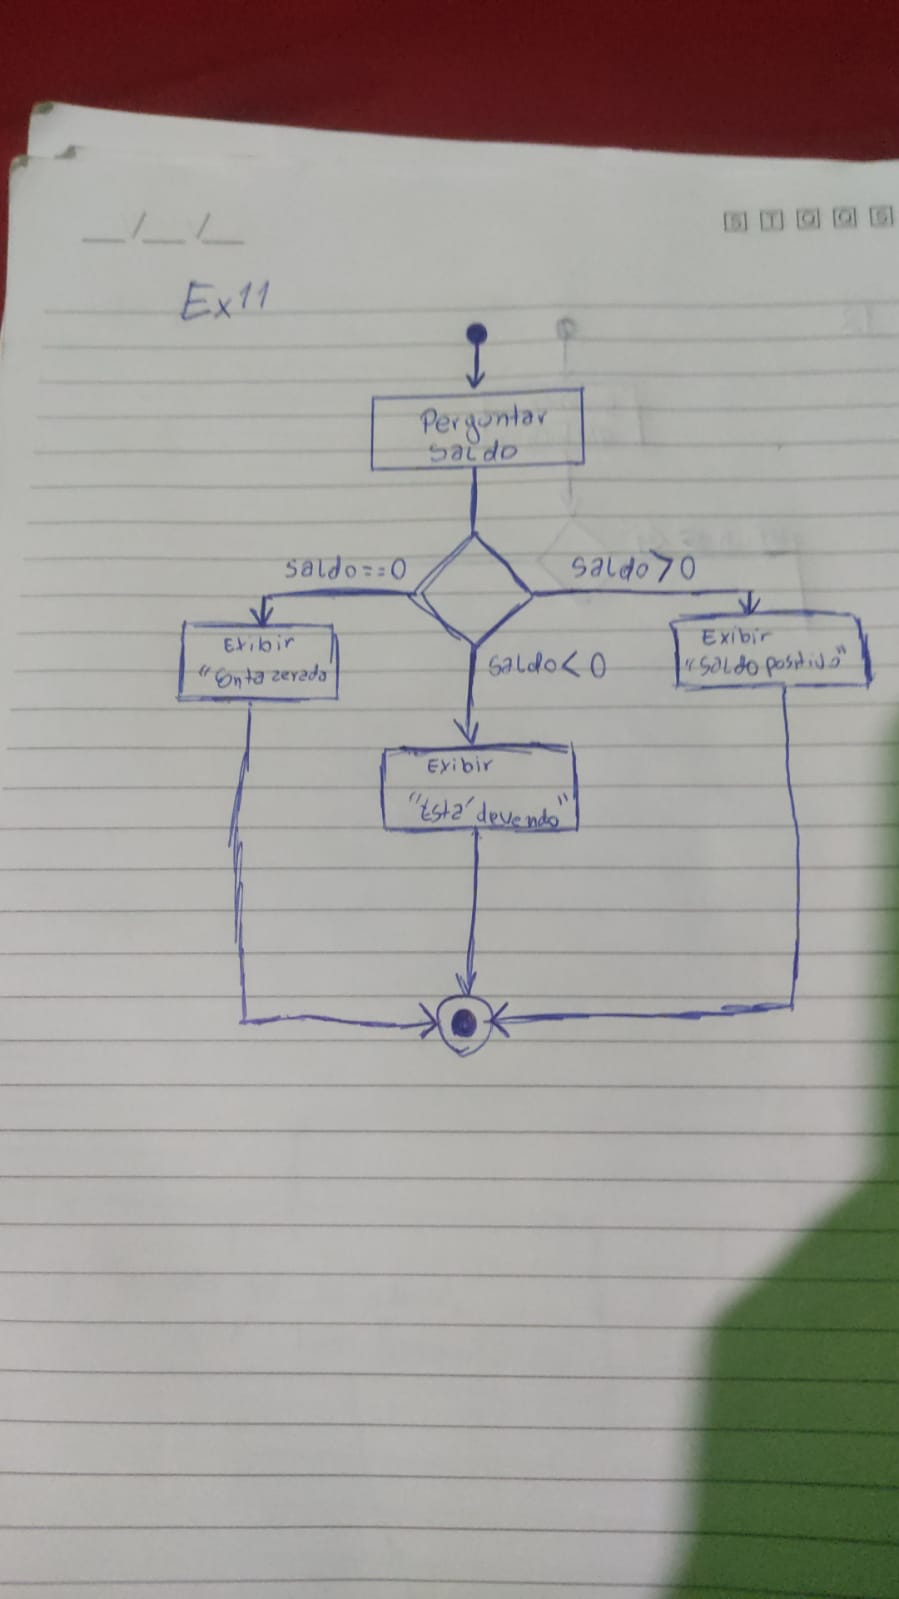 __/__/__
S T Q Q S
Ex11
Perguntar
saldo
saldo==0
saldo>0
Exibir
"Conta zerada
Exibir
"saldo positivo"
saldo<0
Exibir
"Está devendo"